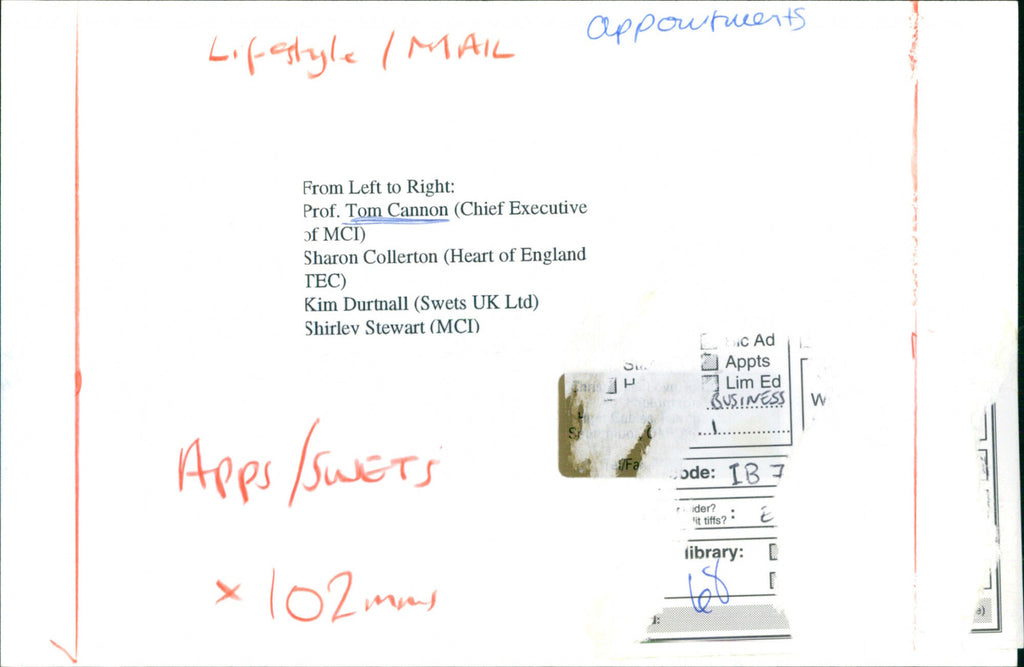 appointments
Lifestyle / MAIL
From Left to Right:
Prof. Tom Cannon (Chief Executive
of MCI)
Sharon Collerton (Heart of England
TEC)
Kim Durtnall (Swets UK Ltd)
Shirley Stewart (MCI)
Ad
Appts
Lim Ed
BUSINESS
W
Apps/SWETS
IB 7
library:
68
× 102mms